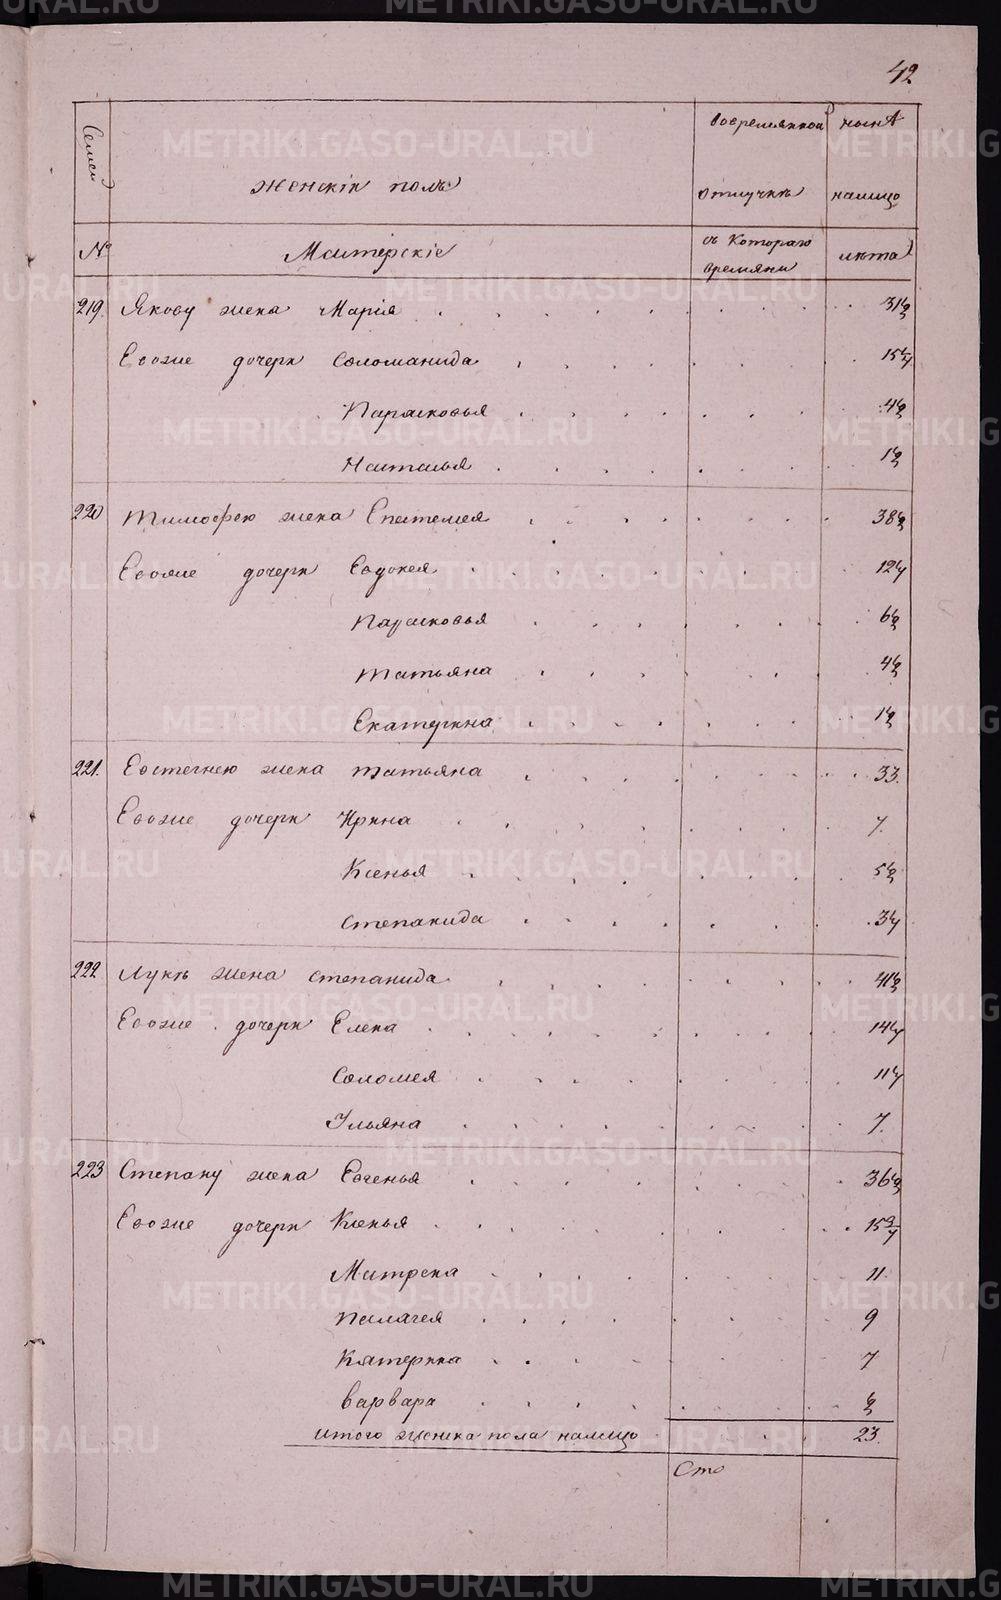 42
Семей
женскiй полъ
вовремянной
нынѣ
отлучкѣ
налицо
№
Мастерскiе
съ котораго
времяни
лѣта
219. Якову жена Марiя 31½
Евоже дочери Соломанида 15¼
Парасковья 4½
Наталья 1½
220 Тимофею жена Епатемея 38½
Евоже дочери Евдокея 12¼
Парасковья 6½
Татьяна 4½
Екатерина 1½
221. Евстегнею жена Татьяна 33.
Евоже дочери Ирина 7.
Ксенья 5½
Степанида 3¼
222 Лукѣ жена Степанида 41½
Евоже дочери Елена 14¼
Соломея 11¼
Ульяна 7.
223 Степану жена Евгенья 36½
Евоже дочери Ксенья 15¾
Матрена 11
Палагея 9
Катерина 7
Варвара ½
итого женска пола налицо 23.
Сто
METRIKI.GASO-URAL.RU